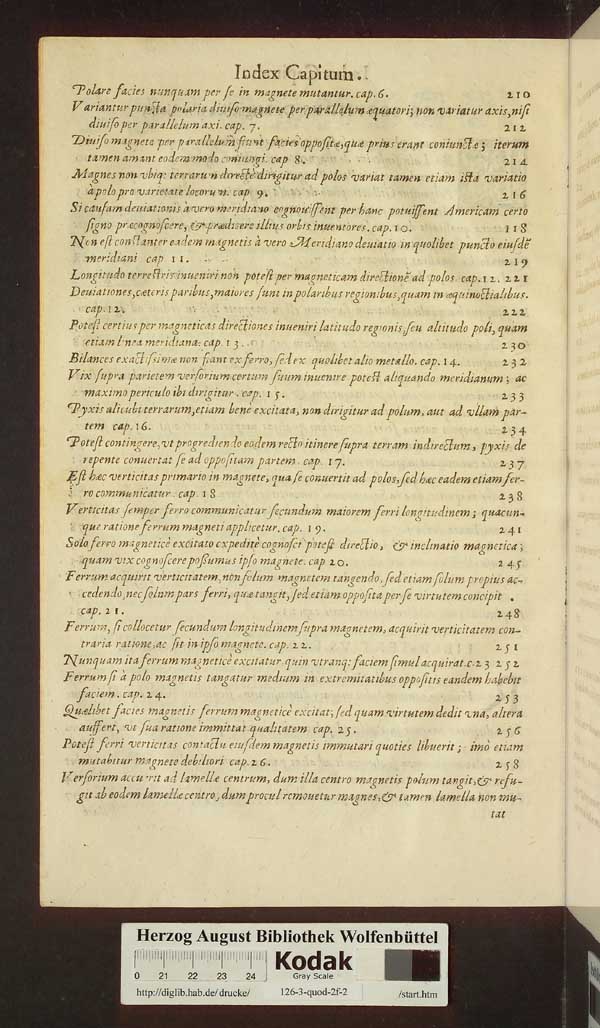 Index Capitum.
Polare facies nunquam per se in magnete mutantur. cap. 6. 210
Variantur puncta polaria diuiso magnete per parallelum æquatori; non variatur axis, nisi
diuiso per parallelum axi. cap. 7. 212
Diuiso magnete per parallelum fiunt facies oppositæ, quæ prius erant coniunctæ; iterum
tamen amant eodem modo coniungi. cap 8. 214
Magnes non vbiq; terrarum directè dirigitur ad polos variat tamen etiam ista variatio
à polo pro varietate locorum. cap. 9. 216
Si causam deuiationis à vero meridiano cognouissent per hanc potuissent Americam certo
signo præcognoscere, & prædicere illius orbis inuentores. cap. 10. 118
Non est constanter eadem magnetis à vero Meridiano deuiatio in quolibet puncto eiusdē
meridiani cap 11. 219
Longitudo terrestris inueniri non potest per magneticam directionē ad polos. cap. 12. 221
Deuiationes, cæteris paribus, maiores sunt in polaribus regionibus, quam in æquinoctialibus.
cap. 12. 222
Potest certius per magneticas directiones inueniri latitudo regionis, seu altitudo poli, quam
etiam linea meridiana. cap. 13. 230
Bilances exactissimæ non fiant ex ferro, sed ex quolibet alio metallo. cap. 14. 232
Vix supra parietem versorium certum suum inuenire potest aliquando meridianum; ac
maximo periculo ibi dirigitur. cap. 15. 233
Pyxis alicubi terrarum, etiam benè excitata, non dirigitur ad polum, aut ad vllam par-
tem cap. 16. 234
Potest contingere, vt progrediendo eodem recto itinere supra terram indirectum, pyxis de
repente conuertat se ad oppositam partem. cap. 17. 237
Est hæc verticitas primario in magnete, qua se conuertit ad polos, sed hæc eadem etiam fer-
ro communicatur. cap. 18 238
Verticitas semper ferro communicatur secundum maiorem ferri longitudinem; quacun-
que ratione ferrum magneti applicetur. cap. 19. 241
Solo ferro magneticè excitato expeditè cognosci potest directio, & inclinatio magnetica;
quam vix cognoscere possumus ipso magnete. cap 20. 245
Ferrum acquirit verticitatem, non solum magnetem tangendo, sed etiam solum propius ac-
cedendo, nec solum pars ferri, quæ tangit, sed etiam opposita per se virtutem concipit.
cap. 21. 248
Ferrum, si collocetur secundum longitudinem supra magnetem, acquirit verticitatem con-
traria ratione, ac sit in ipso magnete. cap. 22. 251
Nunquam ita ferrum magneticè excitatur. quin vtranq: faciem simul acquirat. c. 23 252
Ferrum si à polo magnetis tangatur medium in extremitatibus oppositis eandem habebit
faciem. cap. 24. 253
Quælibet facies magnetis ferrum magneticè excitat; sed quam virtutem dedit vna, altera
auffert, vt sua ratione immittat qualitatem cap. 25. 256
Potest ferri verticitas contactu eiusdem magnetis immutari quoties libuerit; imò etiam
mutabitur magnete debiliori cap. 26. 258
Versorium accurrit ad lamellæ centrum, dum illa centro magnetis polum tangit, & refu-
git ab eodem lamellæ centro, dum procul remouetur magnes; & tamen lamella non mu-
tat
Herzog August Bibliothek Wolfenbüttel
0 21 22 23 24
Kodak
Gray Scale
http://diglib.hab.de/drucke/ 126-3-quod-2f-2 /start.htm